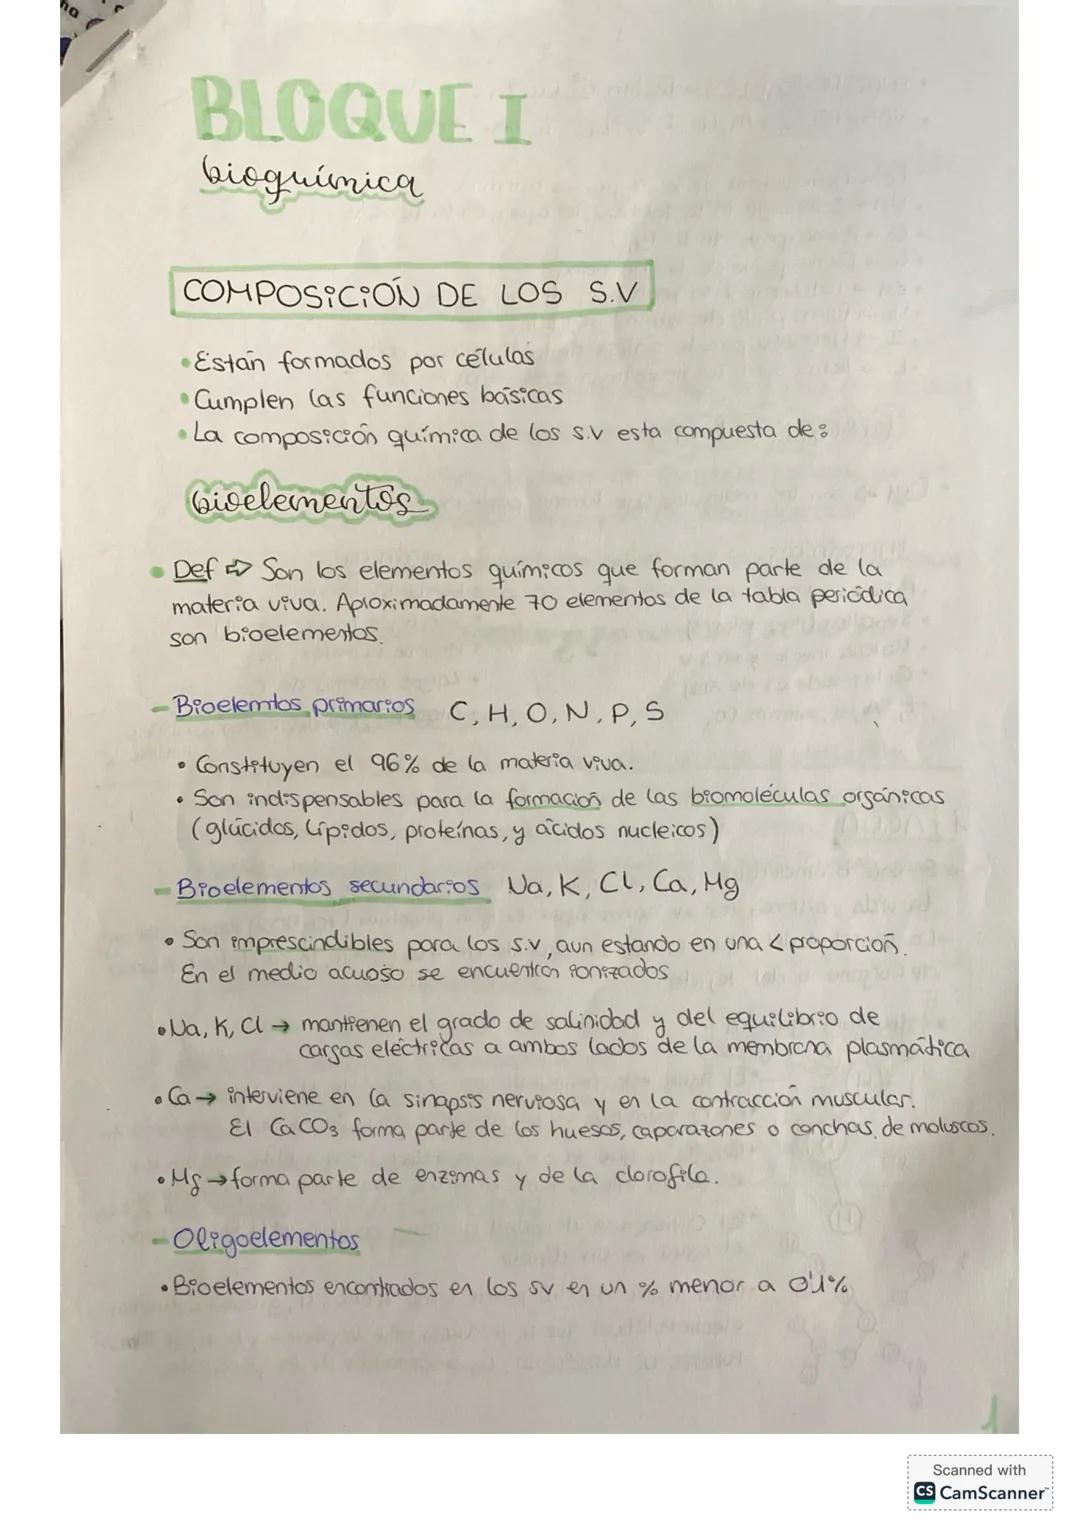 BLOQUE I
bioquímica
COMPOSICIÓN DE LOS S.V
• Están formados por células
• Cumplen las funciones básicas
• La composición química de los s.v esta compuesta de:
bioelementos
• Def ⇨ Son los elementos químicos que forman parte de la
materia viva. Aproximadamente 70 elementos de la tabla periódica
son bioelementos.
- Bioelemtos primarios C, H, O, N, P, S
• Constituyen el 96% de la materia viva.
• Son indispensables para la formación de las biomoléculas orgánicas
(glúcidos, lípidos, proteínas, y ácidos nucleicos)
- Bioelementos secundarios Na, K, Cl, Ca, Mg
• Son imprescindibles para los s.v, aun estando en una < proporción.
En el medio acuoso se encuentran ionizados
• Na, K, Cl → mantienen el grado de salinidad y del equilibrio de
cargas eléctricas a ambos lados de la membrana plasmática
• Ca → interviene en la sinapsis nerviosa y en la contracción muscular.
El CaCO3 forma parte de los huesos, caparazones o conchas de moluscos.
• Mg → forma parte de enzimas y de la clorofila.
- Oligoelementos
• Bioelementos encontrados en los sv en un % menor a 0'1%
1
Scanned with
CS CamScanner